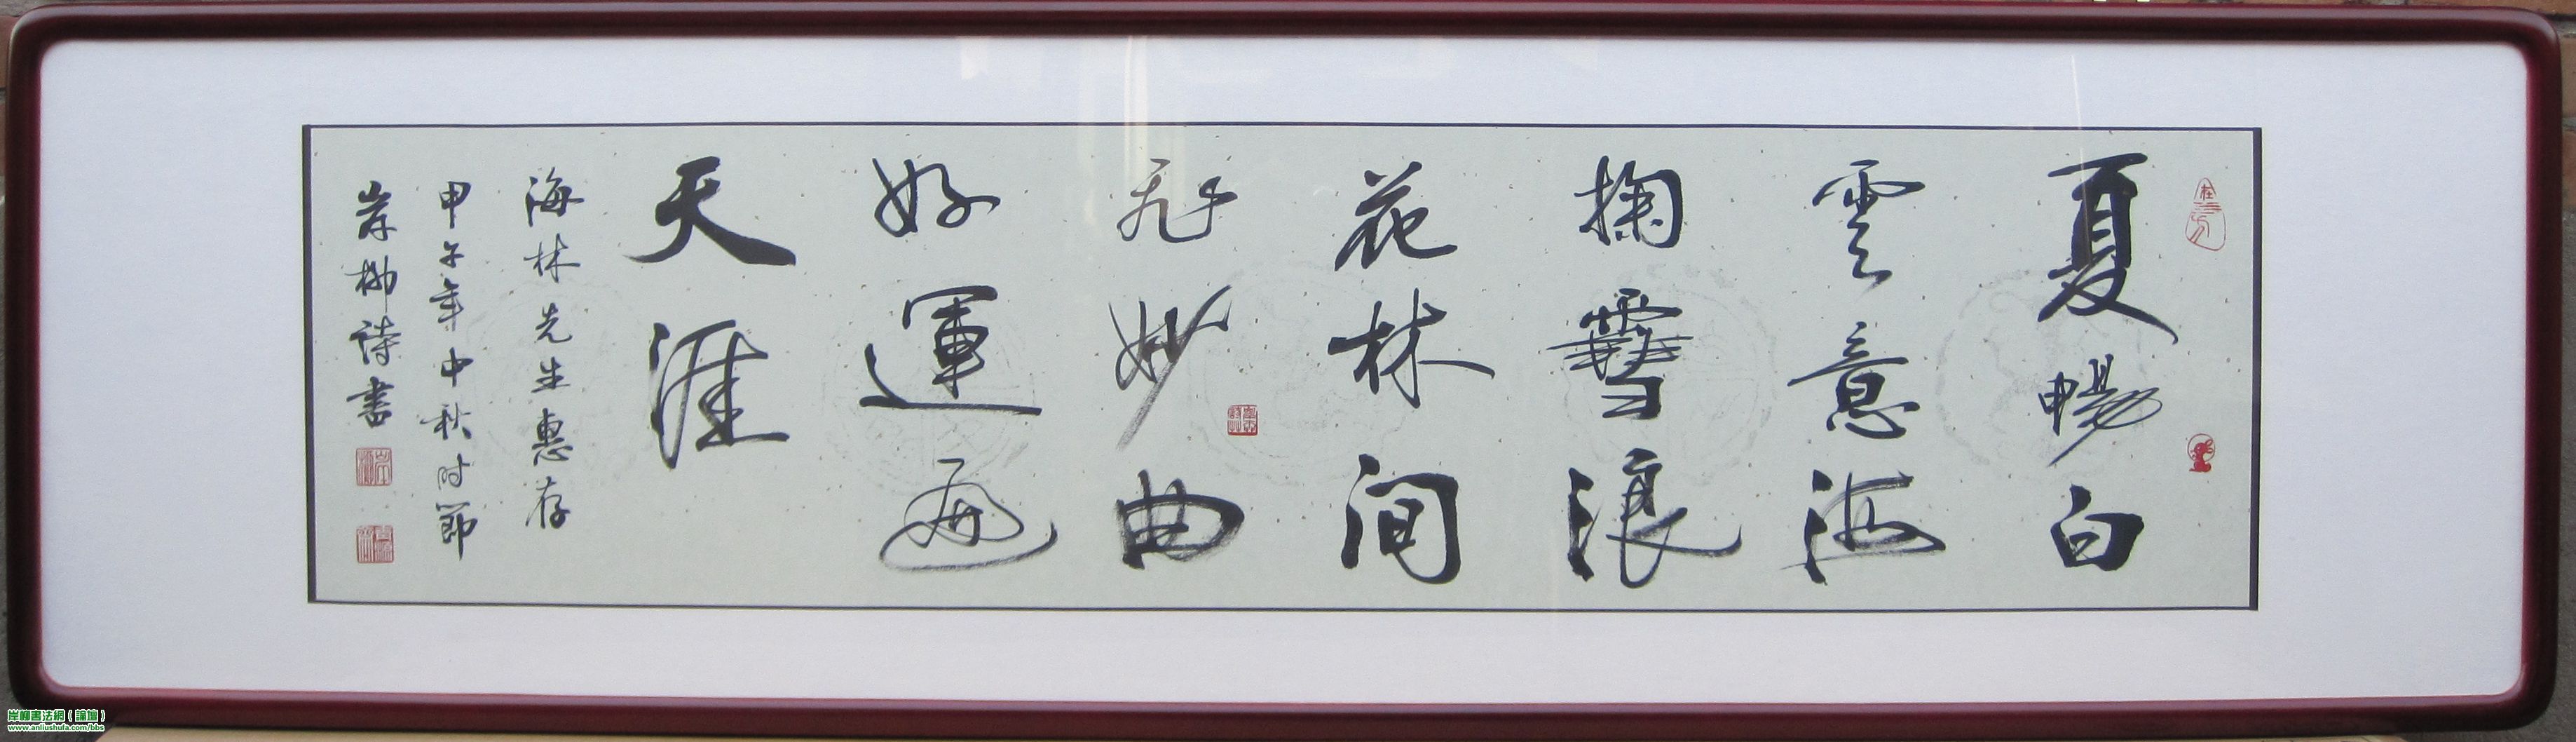 夏暢白
雲意海
掬雪浪
花林間
飛妙曲
好運遍
天涯
海林先生惠存
甲午年中秋时節
岸柳詩書
岸柳書法網(論壇)
www.anliushufa.com/bbs